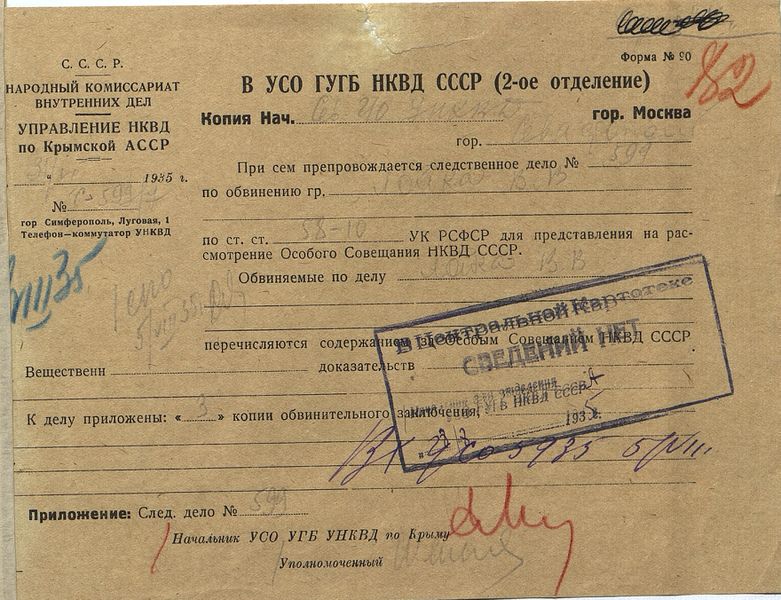 Форма № 90
82
С. С. С. Р.
НАРОДНЫЙ КОМИССАРИАТ
ВНУТРЕННИХ ДЕЛ
УПРАВЛЕНИЕ НКВД
по Крымской АССР
1935 г.
№
гор Симферополь, Луговая, 1
Телефон—коммутатор УНКВД
В УСО ГУГБ НКВД СССР (2-ое отделение)
Копия Нач.
гор. Москва
гор.
При сем препровождается следственное дело № 599
по обвинению гр. В. В
по ст. ст. 58-10 УК РСФСР для представления на рас-
смотрение Особого Совещания НКВД СССР.
Обвиняемые по делу В. В
VIII 35
5/VIII 35
перечисляются содержанием за Особым Совещанием НКВД СССР
Вещественн доказательств
К делу приложены: « 3 » копии обвинительного заключения,
В Центральной Картотеке
СВЕДЕНИЙ НЕТ
отделения
ГУГБ НКВД СССР
1935
5935 5/VIII
Приложение: След. дело № 599
Начальник УСО УГБ УНКВД по Крыму
Уполномоченный